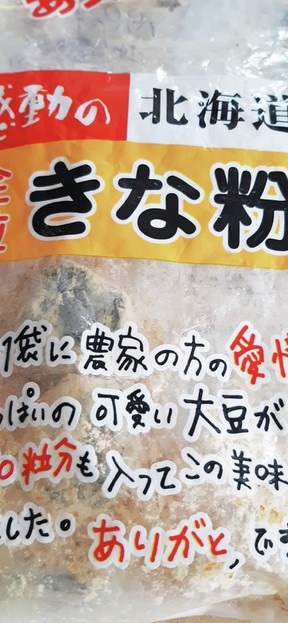 あり
感動の 北海道
きな粉
1袋に農家の方の愛情
っぱいの 可愛い大豆が
0粒分も入ってこの美味
した。ありがと、です